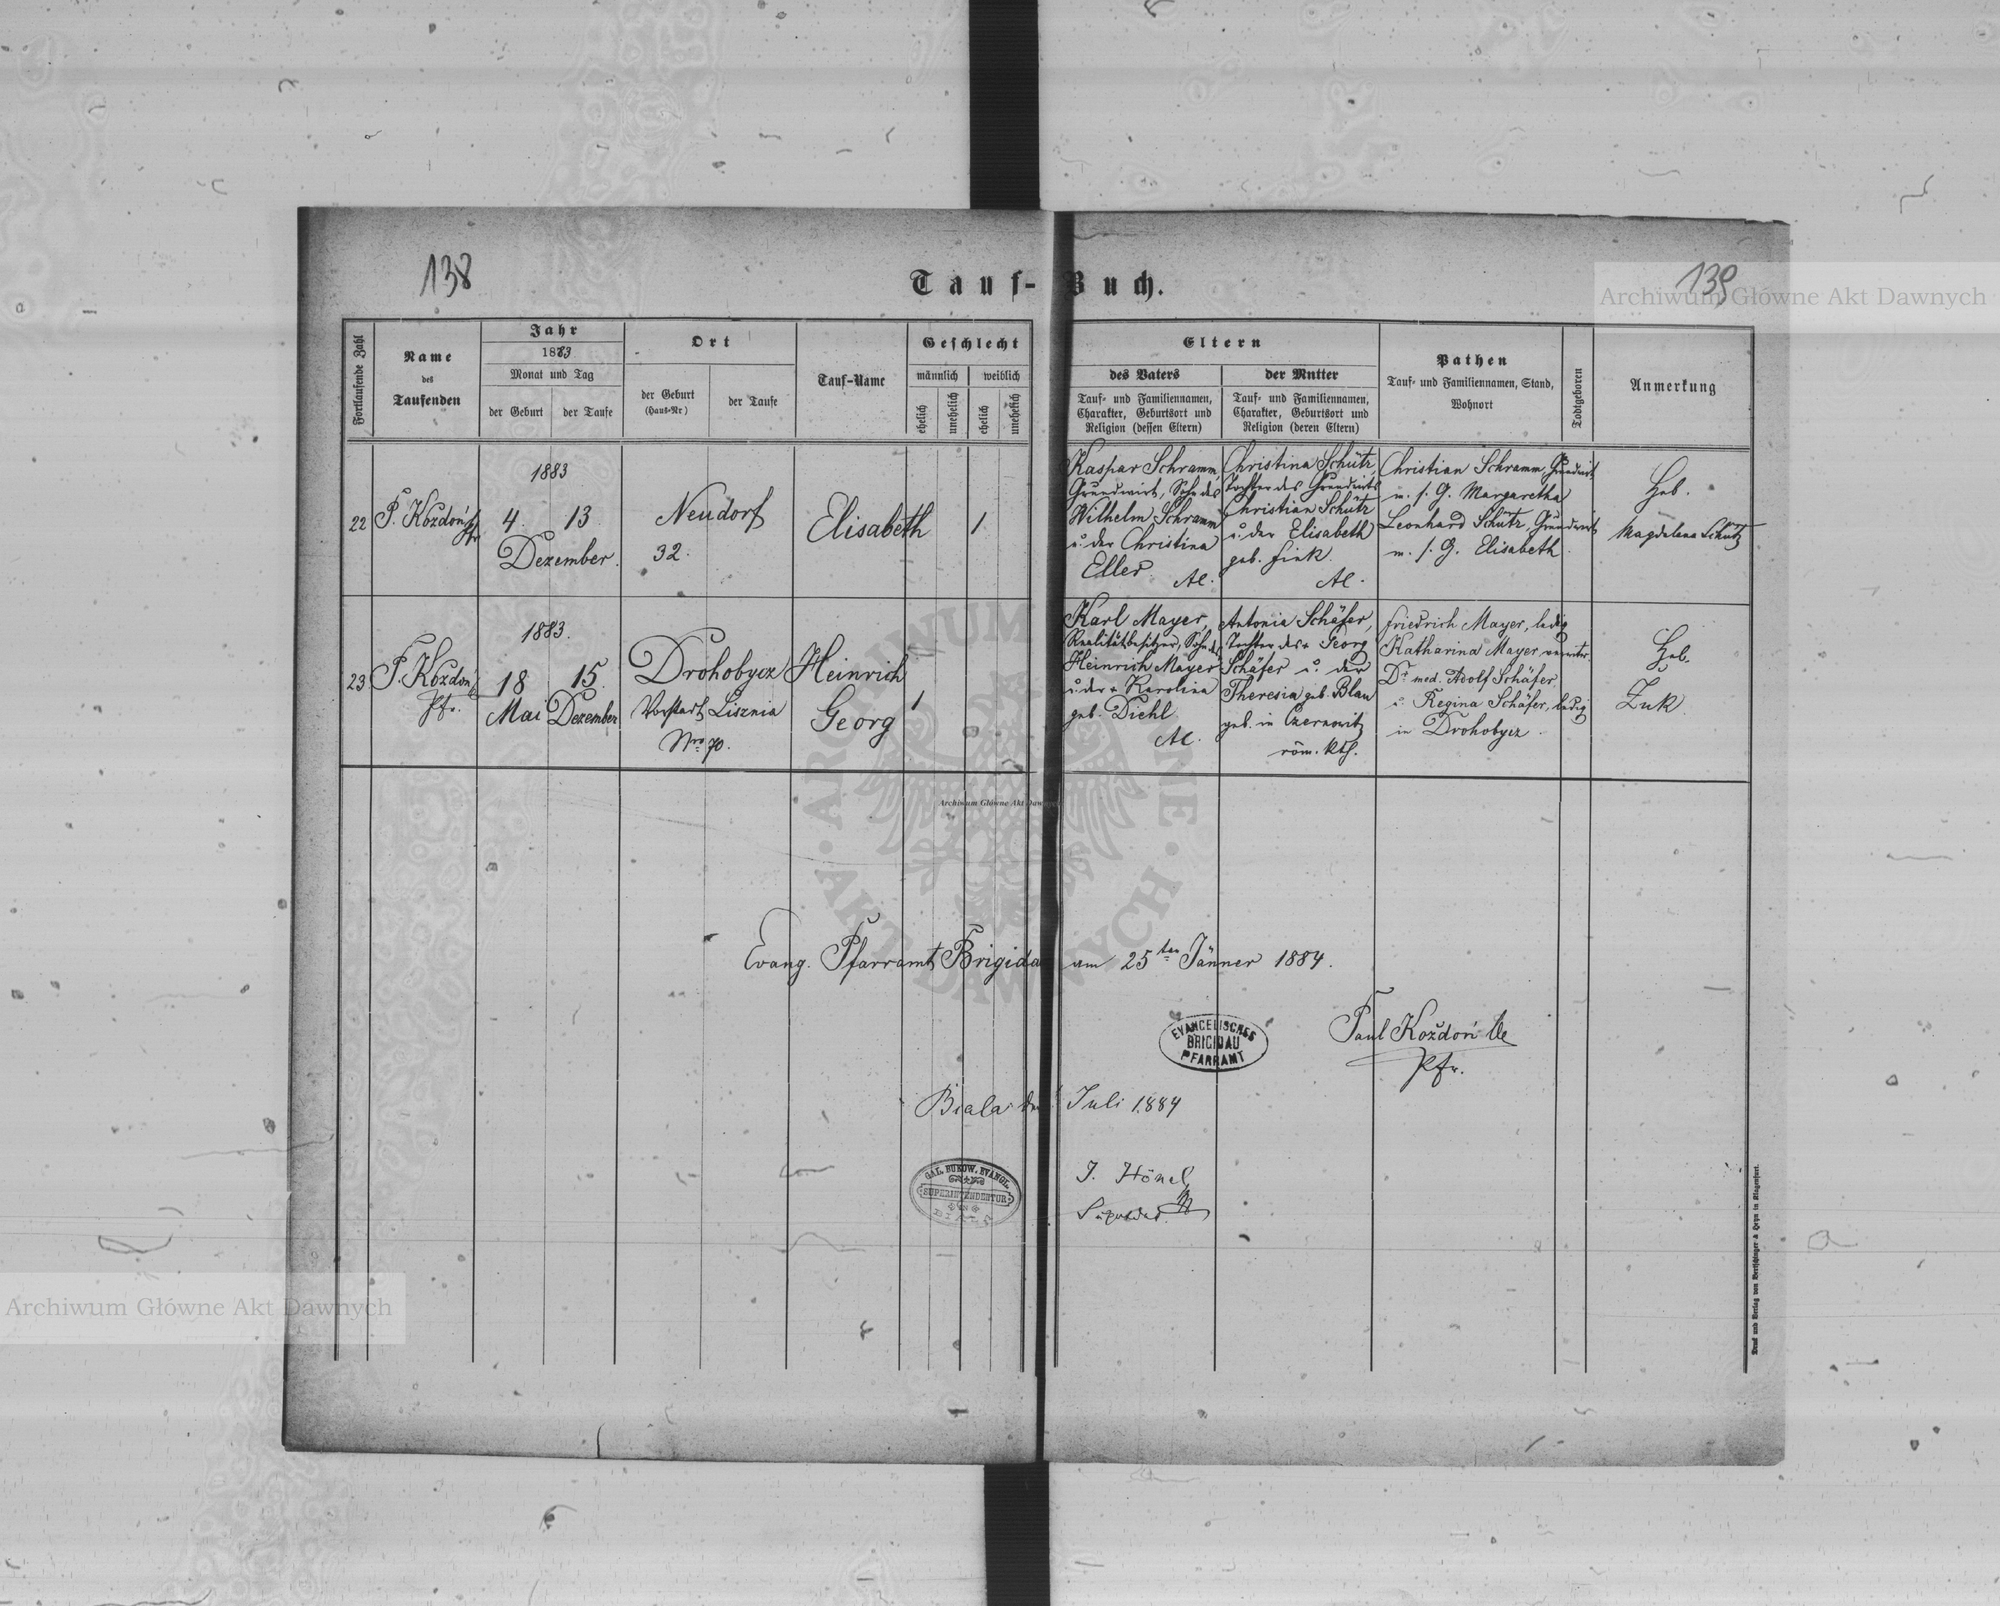 138
139
Tauf-Buch.
Archiwum Główne Akt Dawnych
Fortlaufende Zahl
Name
des
Taufenden
Jahr
1883
Monat und Tag
der Geburt
der Taufe
Ort
der Geburt
(Haus-Nr)
der Taufe
Tauf-Name
Geschlecht
männlich
weiblich
ehelich
unehelich
ehelich
unehelich
Eltern
des Vaters
Tauf- und Familiennamen,
Charakter, Geburtsort und
Religion (dessen Eltern)
der Mutter
Tauf- und Familiennamen,
Charakter, Geburtsort und
Religion (deren Eltern)
Pathen
Tauf- und Familiennamen, Stand,
Wohnort
Todtgeboren
Anmerkung
22
P. Koždoń
Pfr
1883
4. 13.
Dezember.
Neudorf
32.
Elisabeth
1
Kaspar Schramm
Grundwirt, Sohn des
Wilhelm Schramm
u. der Christina
Eller. AC.
Christina Schütz,
Tochter des Grundwirts
Christian Schütz
u. der Elisabeth
geb. Fink.
AC.
Christian Schramm, Grundwirt
m. s. G. Margaretha
Leonhard Schütz, Grundwirt
m. s. G. Elisabeth.
Heb.
Magdalena Schütz
23
P. Koždoń
Pfr.
1883.
18 15.
Mai Dezember
Drohobycz
Vorstadt Lisznia
Nro 70.
Heinrich
Georg
1
Karl Mayer,
Realitätbesitzer, Sohn des
Heinrich Mayer
u. der + Karolina
geb. Diehl
AC.
Antonia Schäfer,
Tochter des + Georg
Schäfer u. der
Theresia geb. Blau
geb. in Czernowitz
röm. kth.
Friedrich Mayer, ledig
Katharina Mayer
Dr. med. Adolf Schäfer
u. Regina Schäfer, ledig
in Drohobycz.
Heb.
Zuk.
ARCHIWUM GŁÓWNE · AKT DAWNYCH ·
Archiwum Główne Akt Dawnych
Evang. Pfarramt Brigidau am 25ten Jänner 1884.
EVANGELISCHES
BRIGIDAU
PFARRAMT
Paul Koždoń
Pfr.
Biala den Juli 1884
GAL. BUKOW. EVANGL.
SUPERINTENDENTUR
BIALA
J. Hönel
Druck und Verlag von Bertschinger & Heyn in Klagenfurt.
Archiwum Główne Akt Dawnych